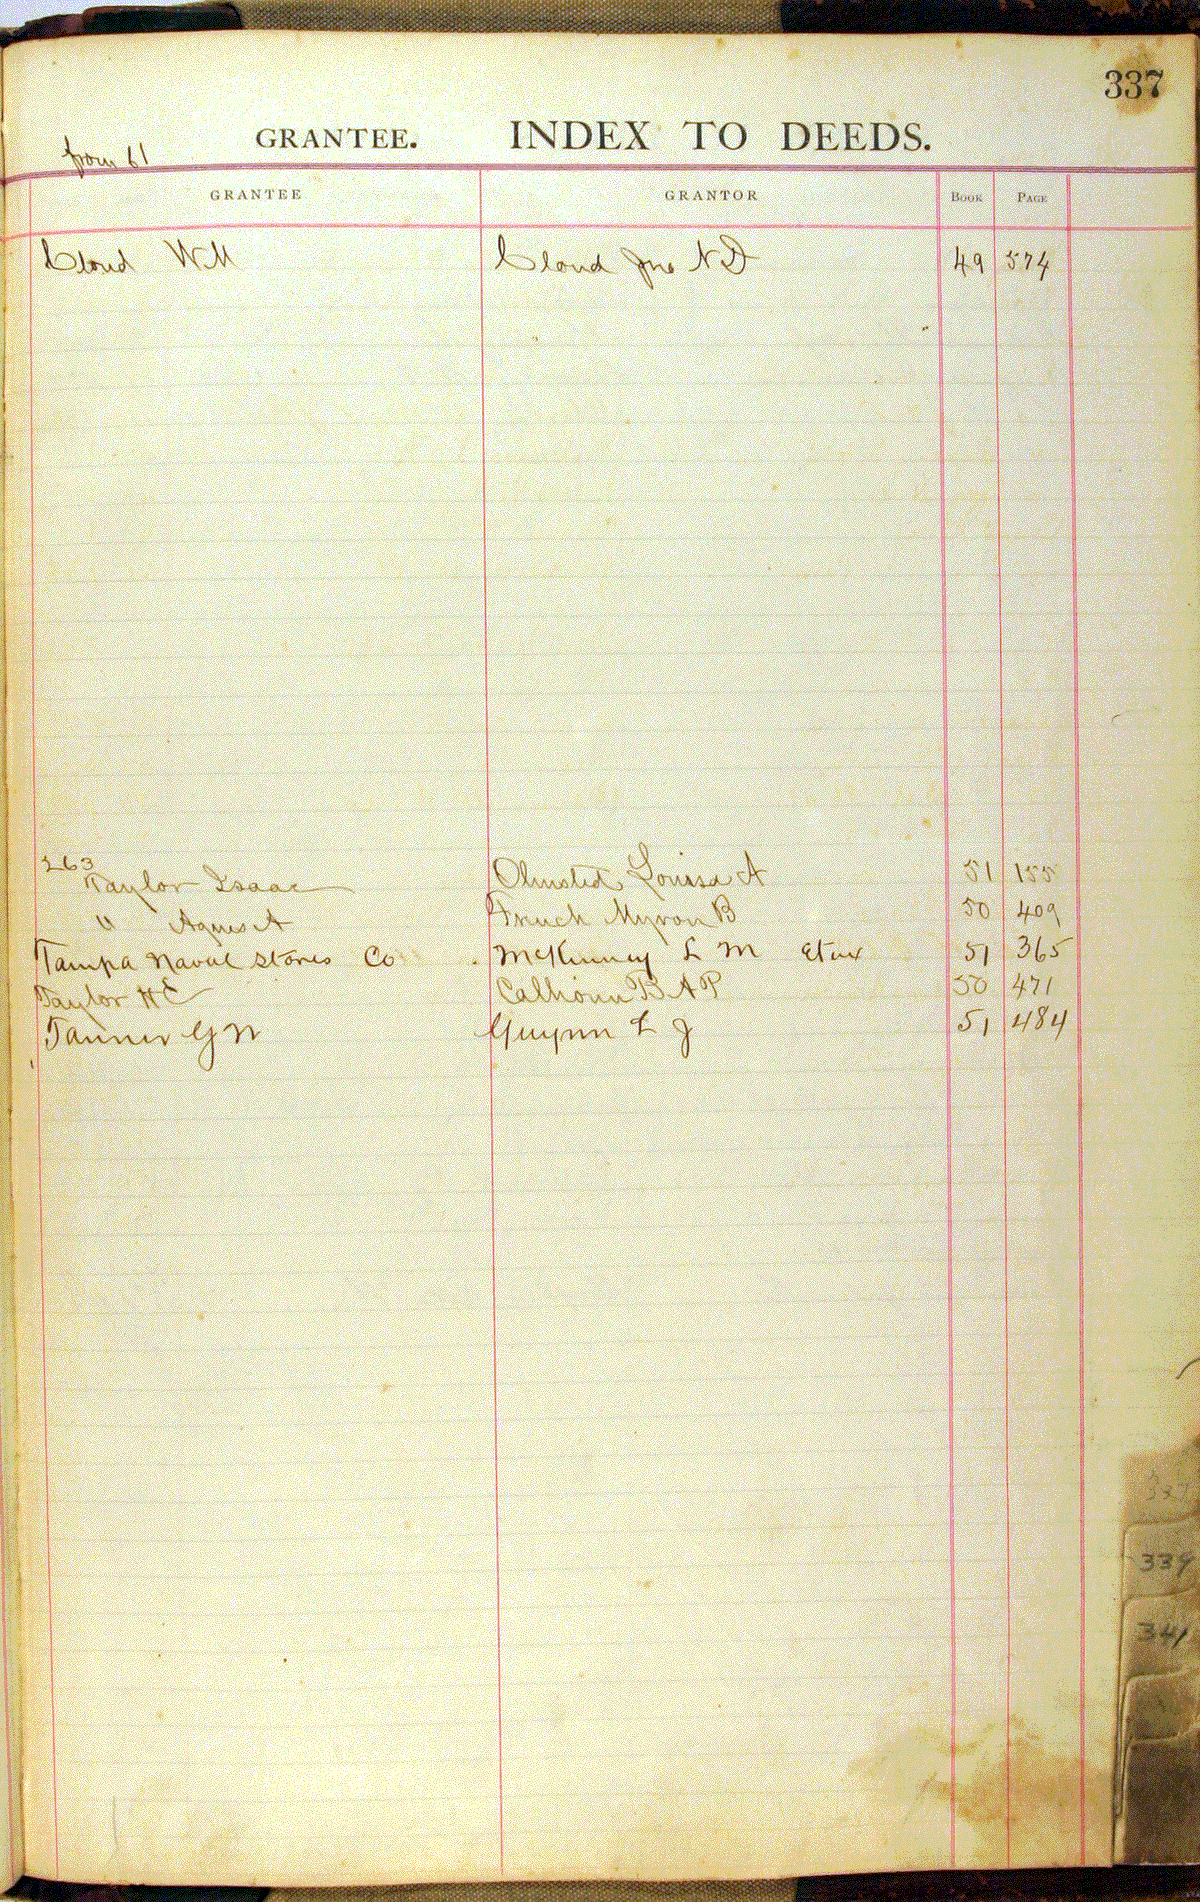 337
GRANTEE. INDEX TO DEEDS.
from 61
GRANTEE GRANTOR BOOK PAGE
Cloud W M Cloud Jno N D 49 574
263
Taylor Isaac Olmsted Louisa A 51 155
" Agnes A French Myron B 50 409
Tampa Naval Stores Co McKinney L M Etux 51 365
Taylor H E Calhoun B A P 50 471
Tanner G W Guynn L J 51 484
337
339
341